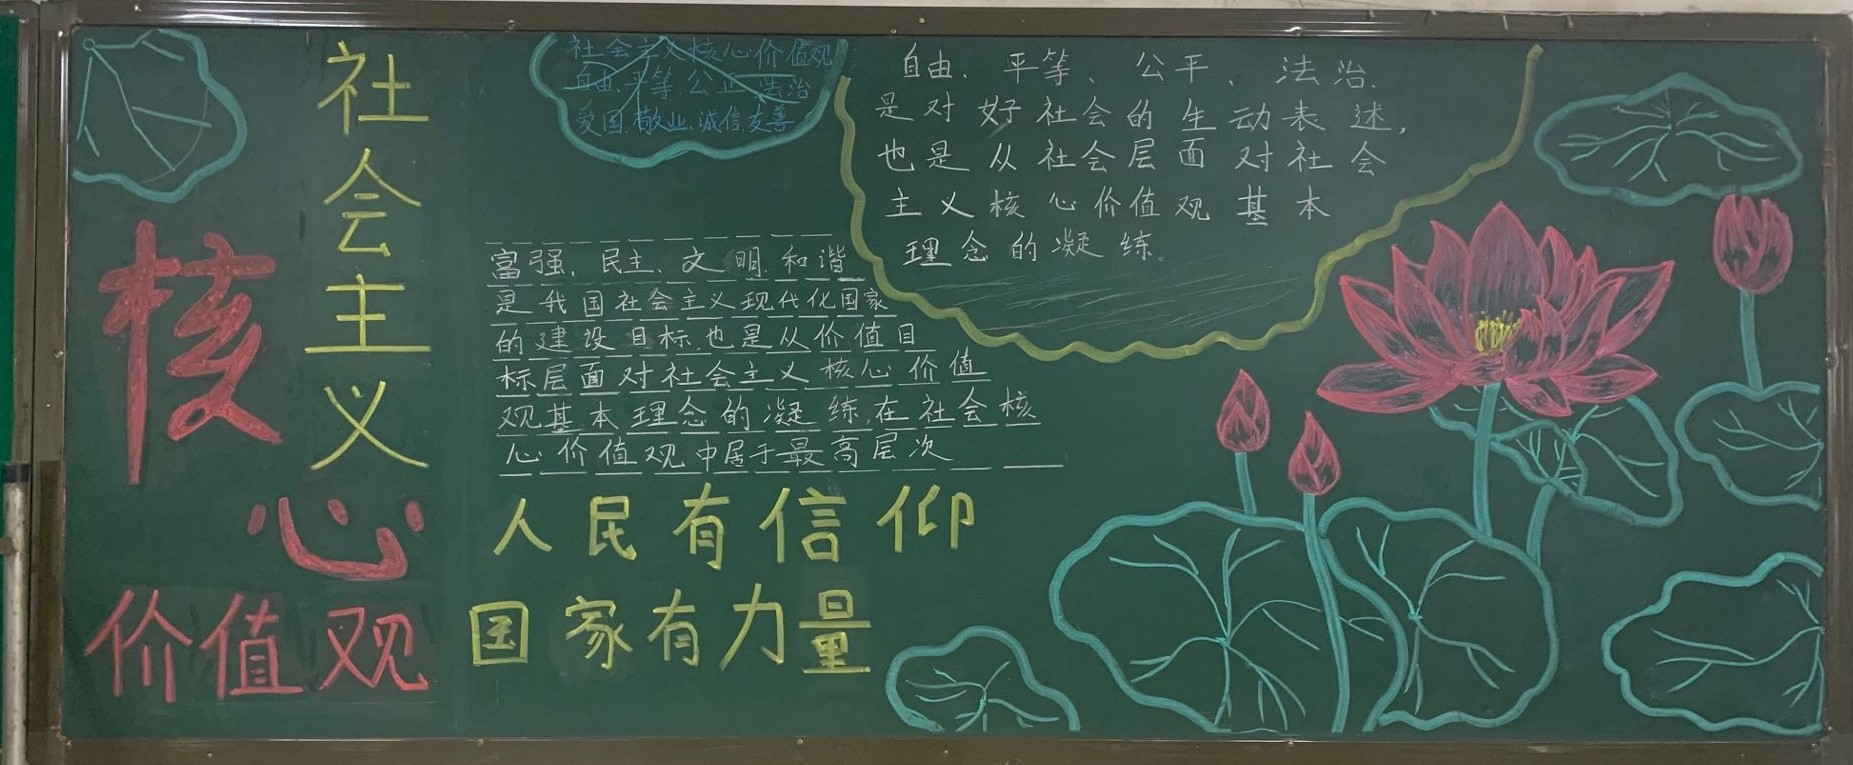 社会主义
核心
价值观
社会主义核心价值观
自由、平等、公正、法治
爱国、敬业、诚信、友善
自由、平等、公平、法治、
是对好社会的生动表述,
也是从社会层面对社会
主义核心价值观基本
理念的凝练。
富强、民主、文明、和谐
是我国社会主义现代化国家
的建设目标,也是从价值目
标层面对社会主义核心价值
观基本理念的凝练,在社会核
心价值观中居于最高层次
人民有信仰
国家有力量